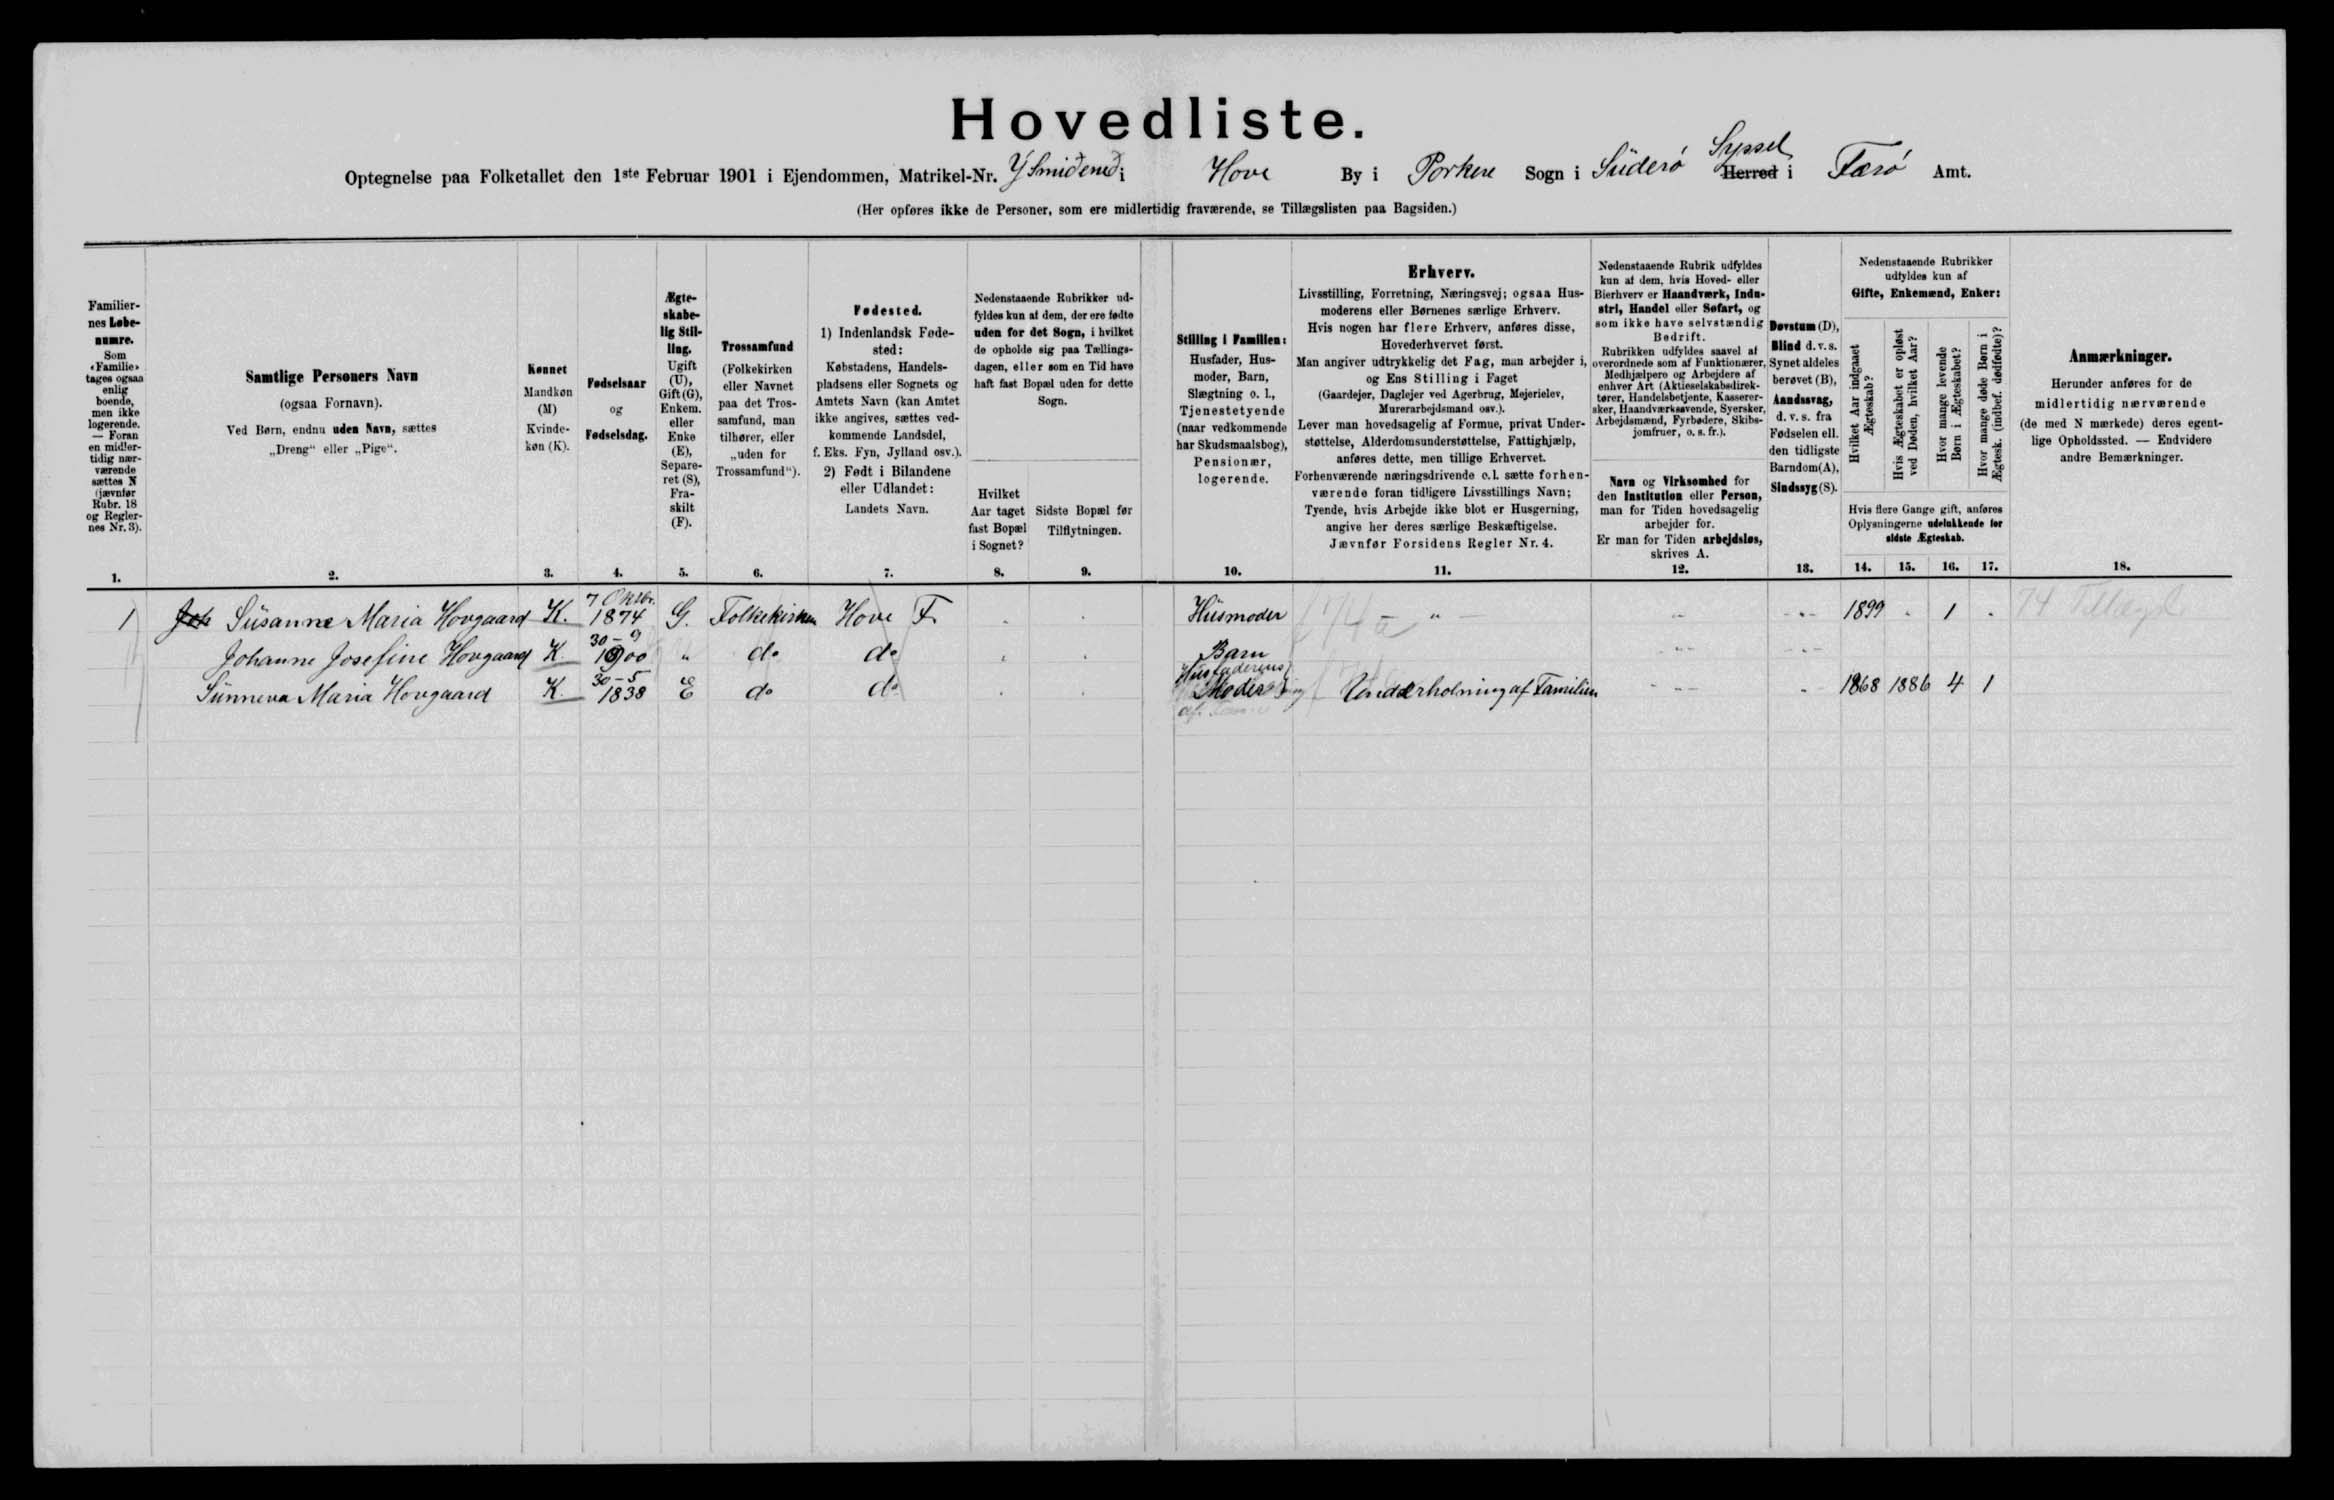 Hovedliste.
Optegnelse paa Folketallet den 1ste Februar 1901 i Ejendommen, Matrikel-Nr. Ý Smiðened i Hove By i Porkere Sogn i Süderö Syssel Herred i Færö Amt.
(Her opføres ikke de Personer, som ere midlertidig fraværende, se Tillægslisten paa Bagsiden.)
Familier-
nes Løbe-
numre.
Som
«Familie»
tages ogsaa
enlig
boende,
men ikke
logerende.
— Foran
en midler-
tidig nær-
værende
sættes N
(jævnfør
Rubr. 18
og Regler-
nes Nr. 3).
1.
Samtlige Personers Navn
(ogsaa Fornavn).
Ved Børn, endnu uden Navn, sættes
„Dreng“ eller „Pige“.
2.
Kønnet
Mandkøn
(M)
Kvinde-
køn (K).
3.
Fødselsaar
og
Fødselsdag.
4.
Ægte-
skabe-
lig Stil-
ling.
Ugift
(U),
Gift (G),
Enkem.
eller
Enke
(E),
Separe-
ret (S),
Fra-
skilt
(F).
5.
Trossamfund
(Folkekirken
eller Navnet
paa det Tros-
samfund, man
tilhører, eller
„uden for
Trossamfund“).
6.
Fødested.
1) Indenlandsk Føde-
sted:
Købstadens, Handels-
pladsens eller Sognets og
Amtets Navn (kan Amtet
ikke angives, sættes ved-
kommende Landsdel,
f. Eks. Fyn, Jylland osv.).
2) Født i Bilandene
eller Udlandet:
Landets Navn.
7.
Nedenstaaende Rubrikker ud-
fyldes kun af dem, der ere fødte
uden for det Sogn, i hvilket
de opholde sig paa Tællings-
dagen, eller som en Tid have
haft fast Bopæl uden for dette
Sogn.
Hvilket
Aar taget
fast Bopæl
i Sognet?
8.
Sidste Bopæl før
Tilflytningen.
9.
Stilling i Familien:
Husfader, Hus-
moder, Barn,
Slægtning o. l.,
Tjenestetyende
(naar vedkommende
har Skudsmaalsbog),
Pensionær,
logerende.
10.
Erhverv.
Livsstilling, Forretning, Næringsvej; ogsaa Hus-
moderens eller Børnenes særlige Erhverv.
Hvis nogen har flere Erhverv, anføres disse,
Hovederhvervet først.
Man angiver udtrykkelig det Fag, man arbejder i,
og Ens Stilling i Faget
(Gaardejer, Daglejer ved Agerbrug, Mejerielev,
Murerarbejdsmand osv.).
Lever man hovedsagelig af Formue, privat Under-
støttelse, Alderdomsunderstøttelse, Fattighjælp,
anføres dette, men tillige Erhvervet.
Forhenværende næringsdrivende o. l. sætte forhen-
værende foran tidligere Livsstillings Navn;
Tyende, hvis Arbejde ikke blot er Husgerning,
angive her deres særlige Beskæftigelse.
Jævnfør Forsidens Regler Nr. 4.
11.
Nedenstaaende Rubrik udfyldes
kun af dem, hvis Hoved- eller
Bierhverv er Haandværk, Indu-
stri, Handel eller Søfart, og
som ikke have selvstændig
Bedrift.
Rubrikken udfyldes saavel af
overordnede som af Funktionærer,
Medhjælpere og Arbejdere af
enhver Art (Aktieselskabsdirek-
tører, Handelsbetjente, Kasserer-
sker, Haandværkssvende, Syersker,
Arbejdsmænd, Fyrbødere, Skibs-
jomfruer, o. s. fr.).
Navn og Virksomhed for
den Institution eller Person,
man for Tiden hovedsagelig
arbejder for.
Er man for Tiden arbejdsløs,
skrives A.
12.
Døvstum (D),
Blind d. v. s.
Synet aldeles
berøvet (B),
Aandssvag,
d. v. s. fra
Fødselen ell.
den tidligste
Barndom (A),
Sindssyg (S).
13.
Nedenstaaende Rubrikker
udfyldes kun af
Gifte, Enkemænd, Enker:
Hvilket Aar indgaaet
Ægteskab?
Hvis Ægteskabet er opløst
ved Døden, hvilket Aar?
Hvor mange levende
Børn i Ægteskabet?
Hvor mange døde Børn i
Ægtesk. (indbef. dødfødte)?
Hvis flere Gange gift, anføres
Oplysningerne udelukkende for
sidste Ægteskab.
14. 15. 16. 17.
Anmærkninger.
Herunder anføres for de
midlertidig nærværende
(de med N mærkede) deres egent-
lige Opholdssted. — Endvidere
andre Bemærkninger.
18.
1 Joh Süsanne Maria Hovgaard K. 7 Oktbr. 1874 G. Folkekirken Hove F Hüsmoder " 1899 - 1 - 74 Tillægsl
Johanne Josefine Hovgaard K. 30-9 1900 " do do Barn
Sünneva Maria Hovgaard K. 30-5 1838 E do do Husfaderens Moder Underholning af Familien 1868 1886 4 1